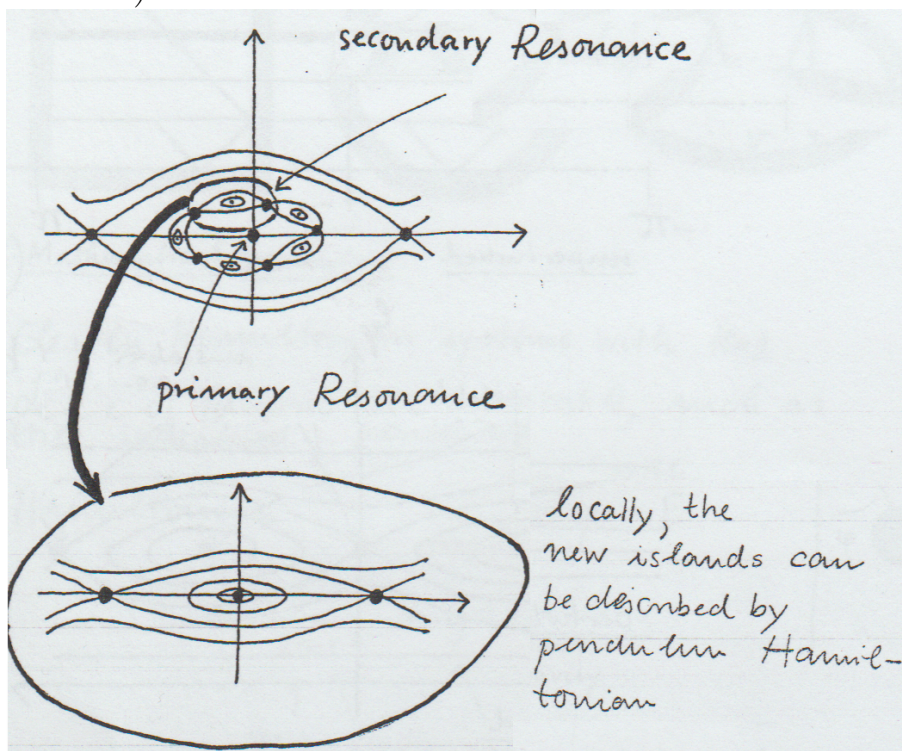 secondary Resonance
primary Resonance
locally, the
new islands can
be described by
pendulum Hamil-
tonian